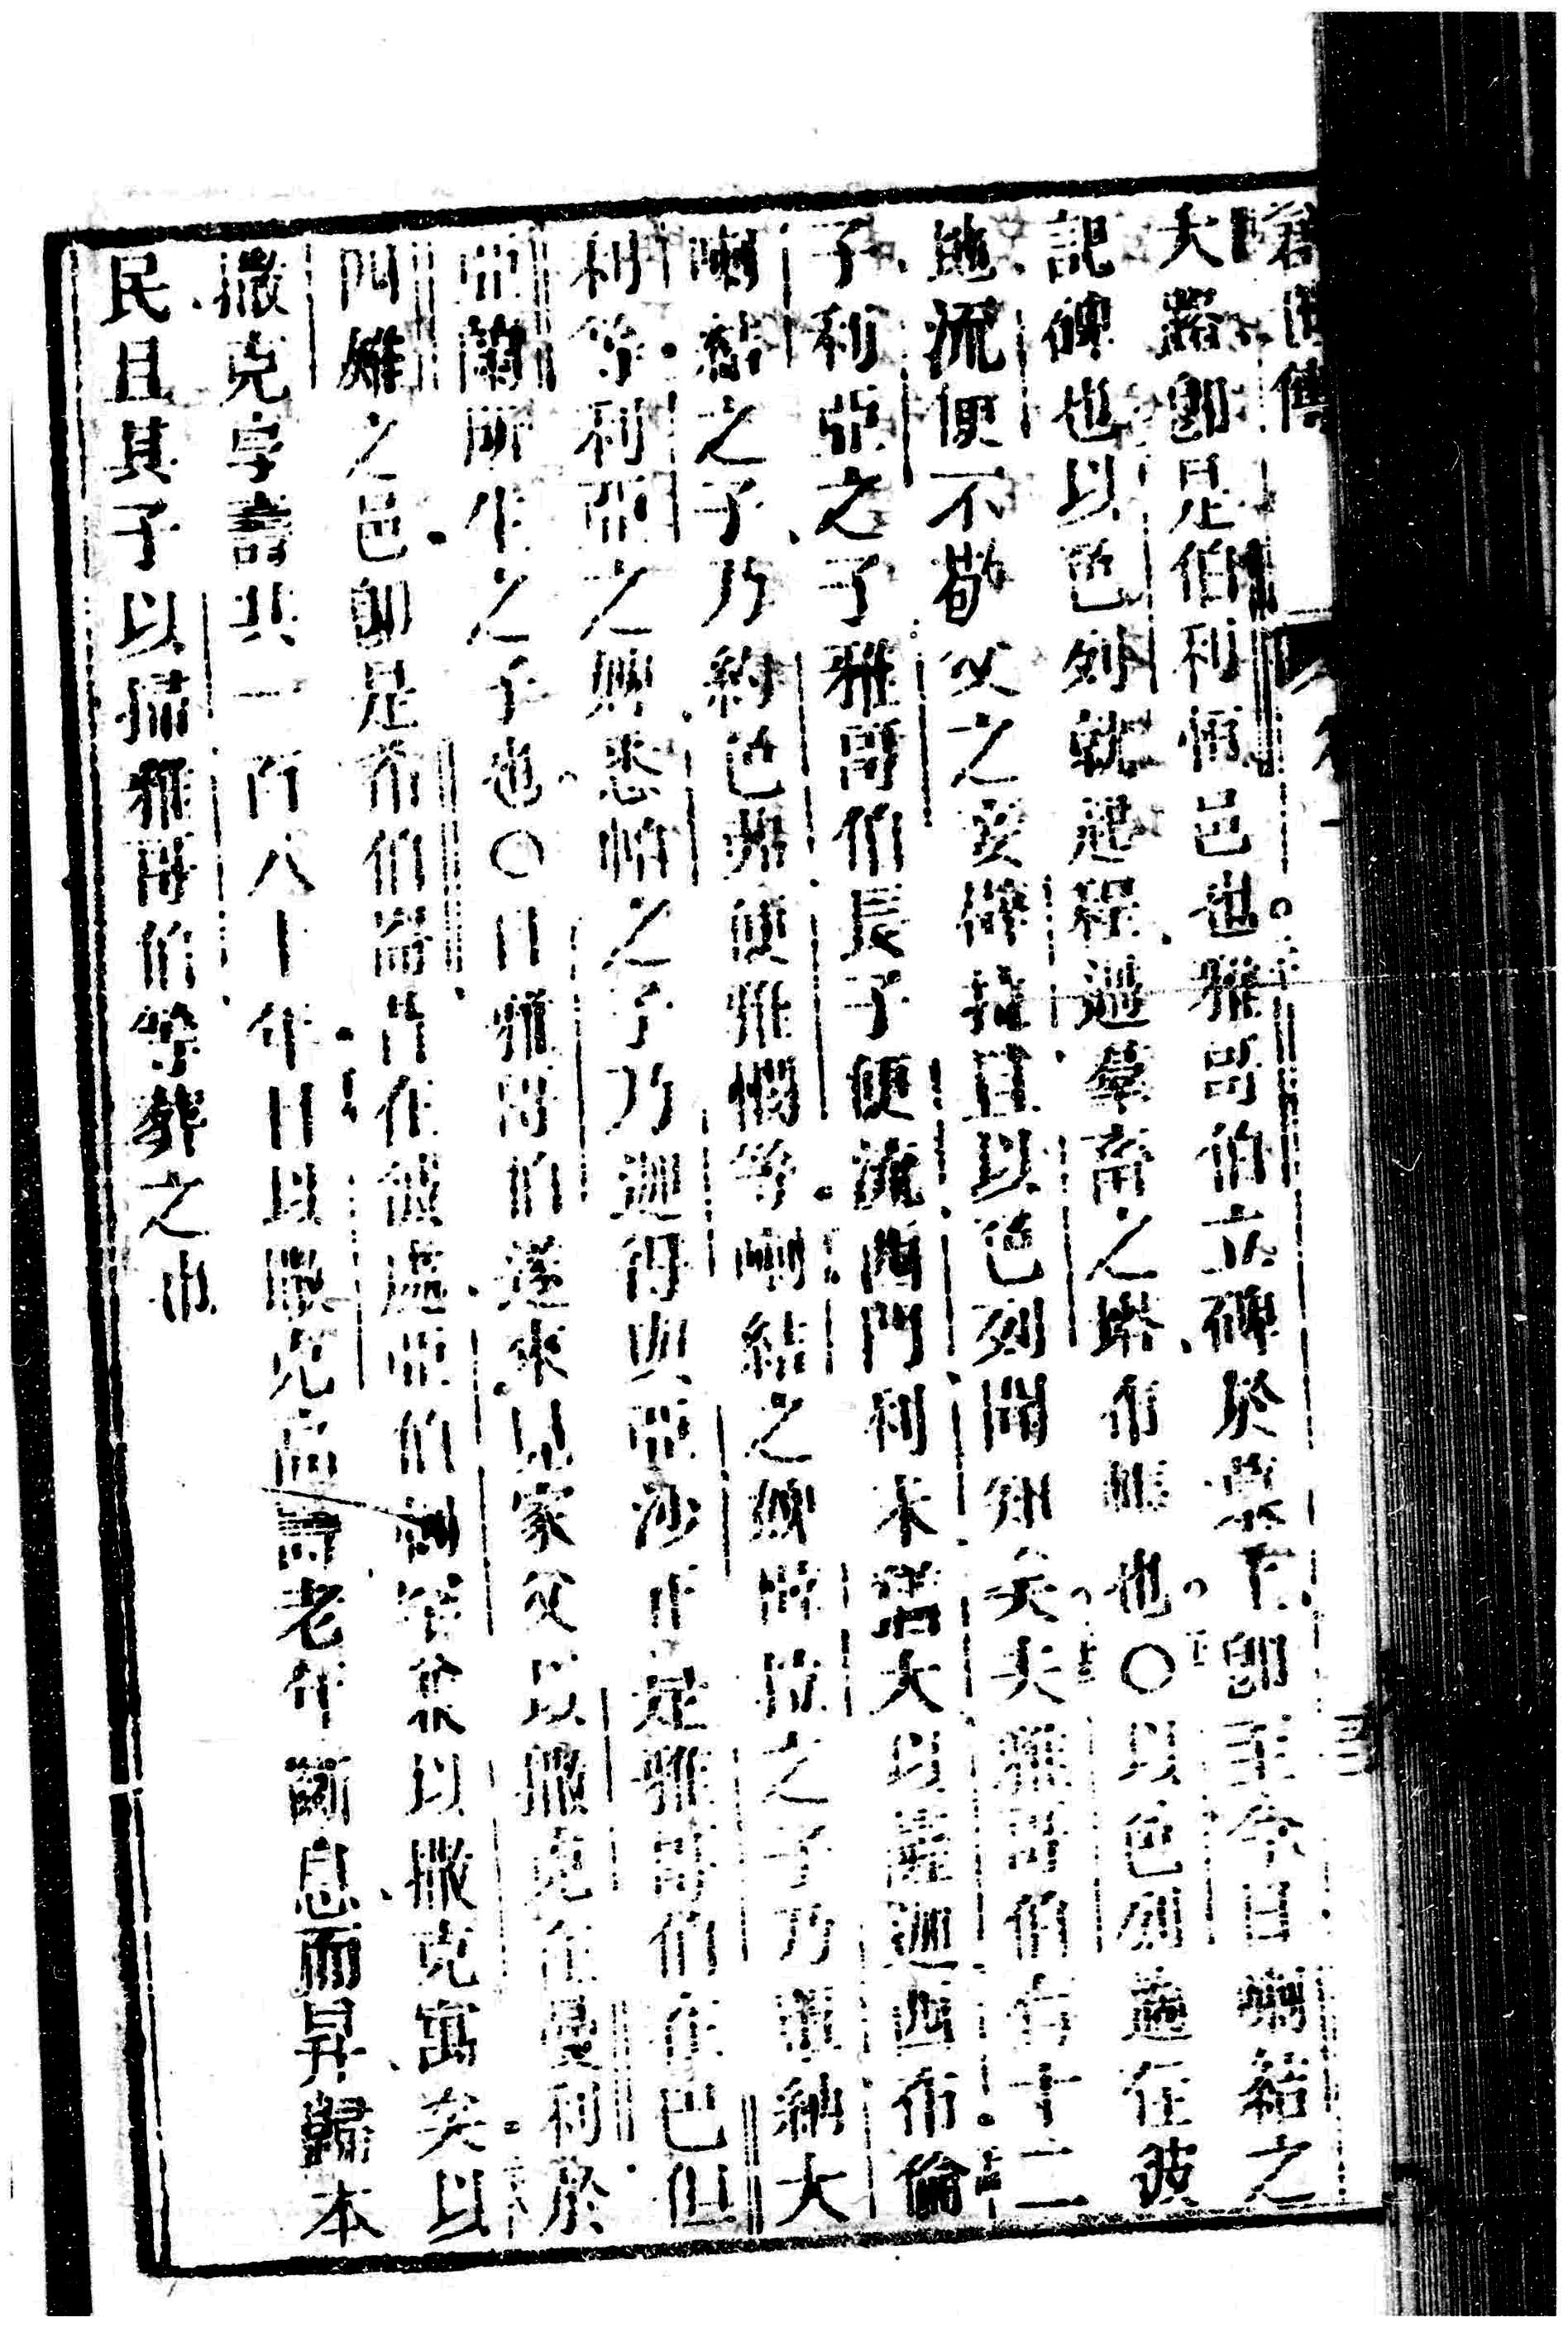 大路卽是伯利恒邑也雅哥伯立碑於墓上卽至今日喇結之
記碑也以色列就起程過羣畜之塔布帳也○以色列適在彼
地流便不敬父之妾碑拉且以色列聞知矣夫雅哥伯有十二
子利亞之子雅哥伯長子便流西門利未如大以薩迦西布倫
喇結之子乃約色弗便雅憫等喇結之婢皮拉之子乃但納大
利等利亞之婢悉帕之子乃迦得與亞沙此是雅哥伯在巴但
亞蘭所生之子也○且雅哥伯遂來見家父以撒克在曼利於
四雉之邑卽是希伯崙昔在彼處亞伯剌罕兼以撒克寓矣以
撒克享壽共一百八十年且以撒克高壽老年斷息而昇歸本
民且其子以掃雅哥伯等葬之也